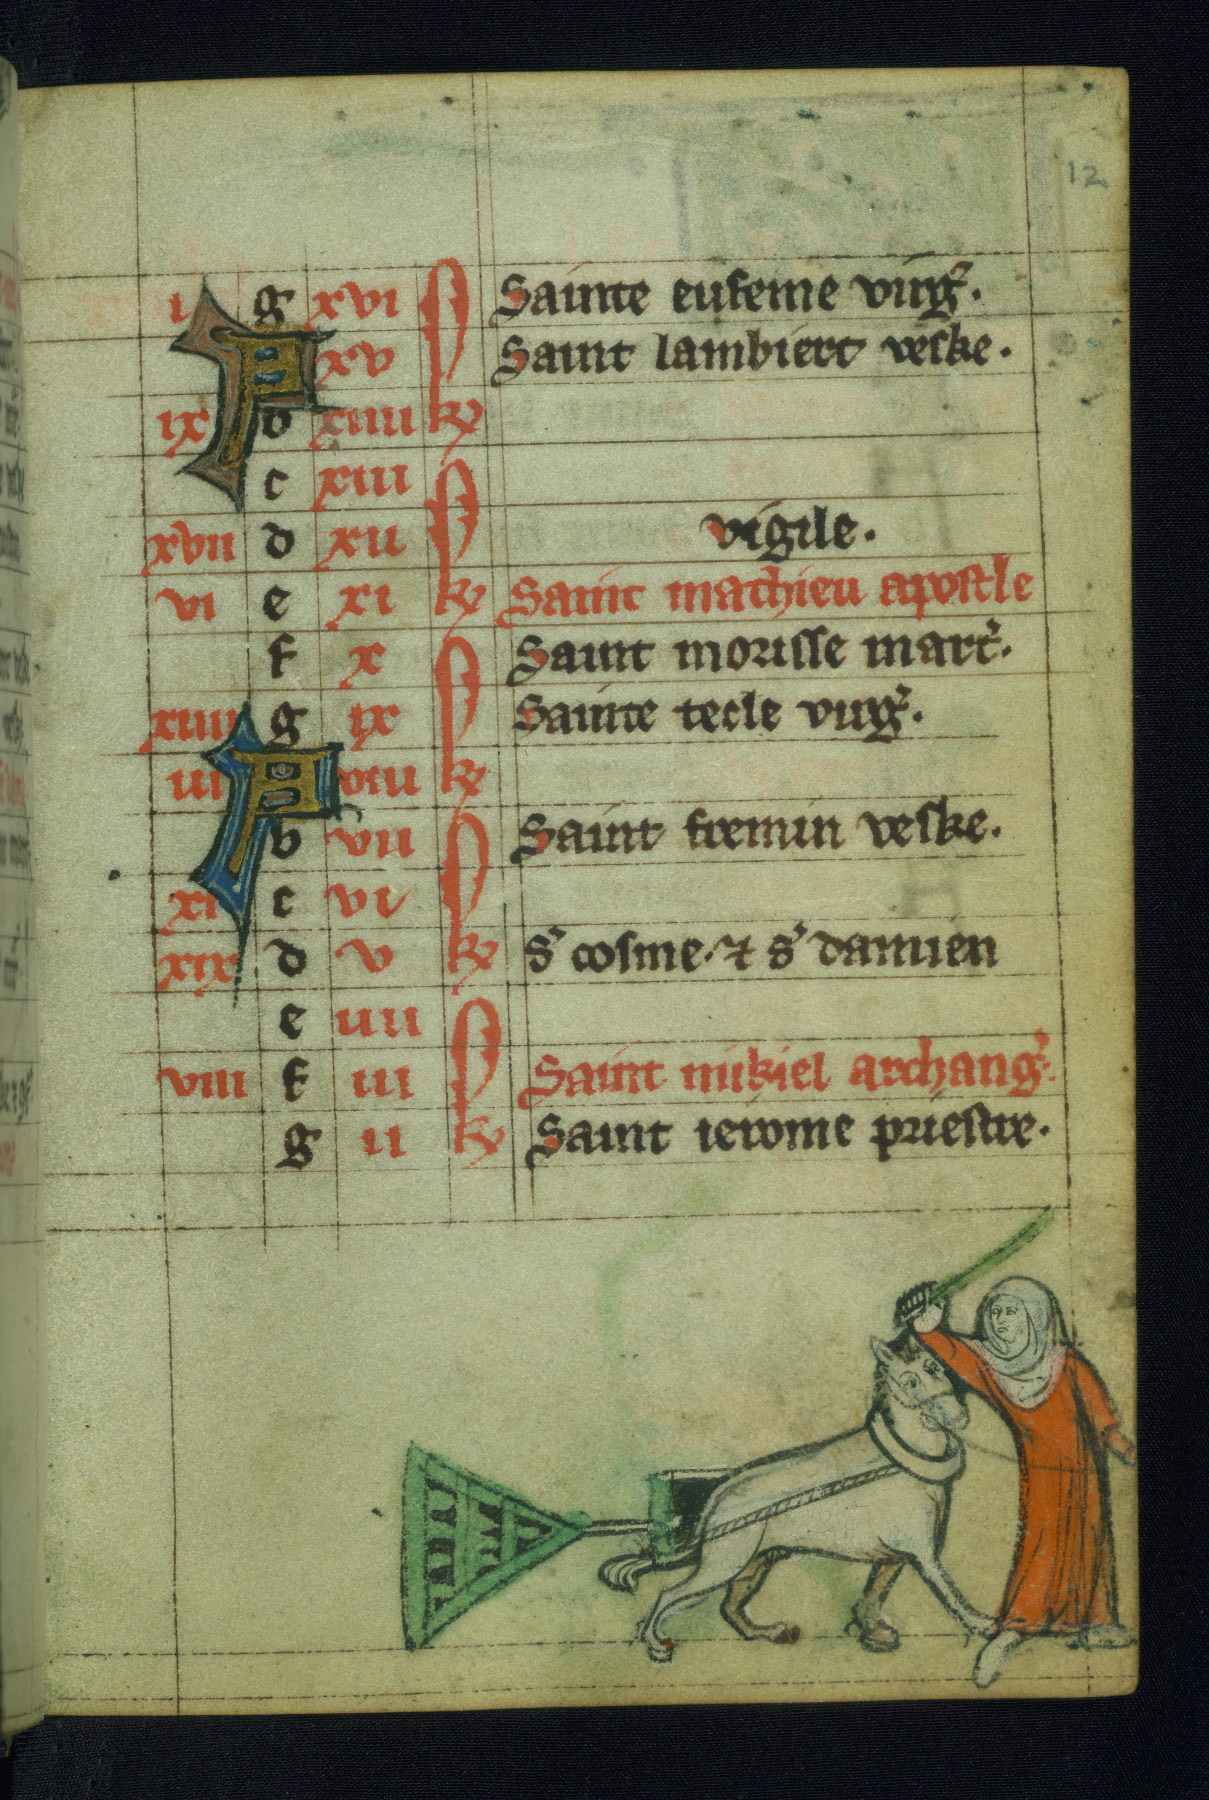 12
i g xvi Sainte eufeme virg.
A xv Saint lambiert veske.
ix b xiiii kl
c xiii
xvii d xii vigile.
vi e xi kl Saint mathieu apostle
f x Saint morisse mart.
xiiii g ix Sainte tecle virg.
iii A viii kl
b vii Saint fremin veske.
xi c vi
xix d v kl s' cosme. ⁊ s' damien
e iiii
viii f iii Saint mikiel archang.
g ii kl Saint ierome priestre.